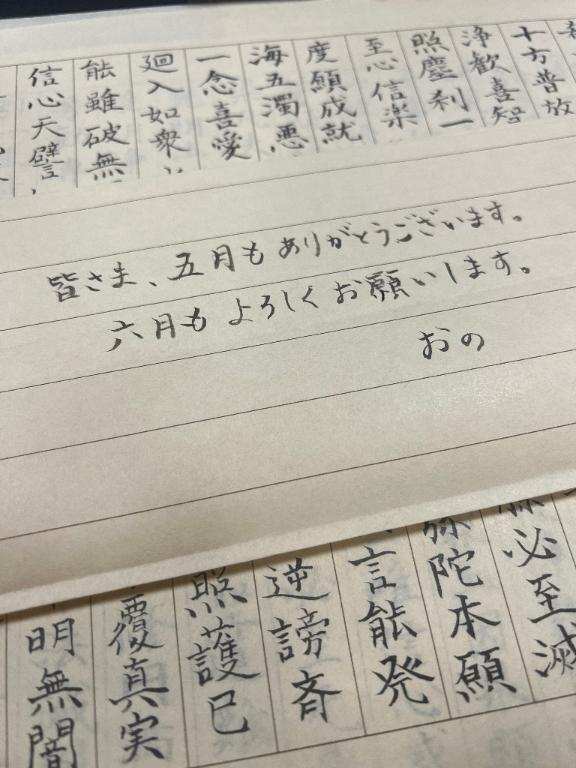 十方普放
浄歓喜智
照塵刹一
至心信楽
度願成就
海五濁悪
一念喜愛
廻入如衆
能雖破無
信心天譬
皆さま、五月もありがとうございます。
六月もよろしくお願いします。
おの
必至滅
弥陀本願
言能発
逆謗斉
照護已
覆真実
明無闇